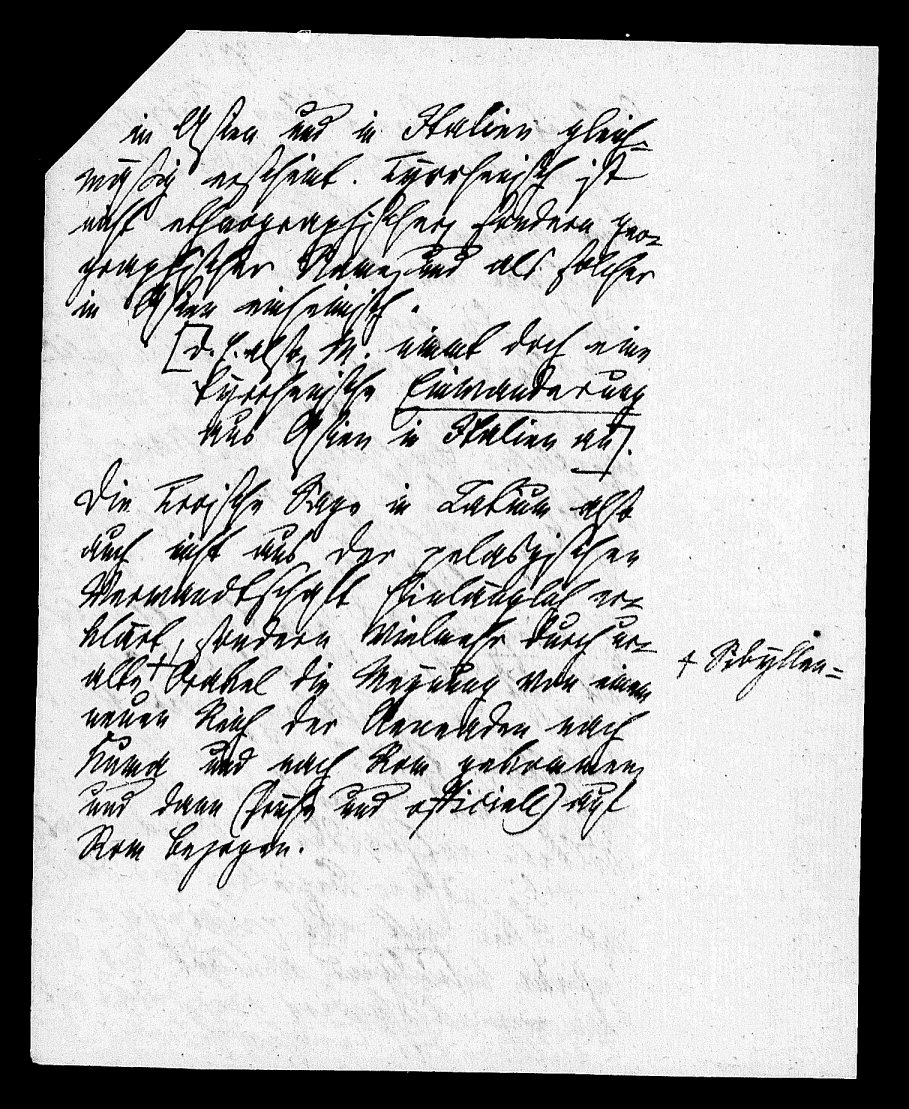 in Asien und in Italien gleich=
mäßig erscheint. Tyrrhenisch ist
nicht ethnographischer, sondern geo-
graphischer Name, und als solcher
in Asien einheimisch.
[d. h. also, M. nimmt doch eine
tyrrhenische Einwanderung
aus Asien in Italien an].
Die troische Sage in Latium also
auch nicht aus der pelasgischen
Verwandtschaft hinlänglich er-
klärt, sondern vielmehr durch ur-
alte + Orakel die Meynung von einem
neuen Reich der Aeneaden nach
Kuma und nach Rom gekommen,
und dann (früh und officiell) auf
Rom bezogen.
+ Sibyllen=